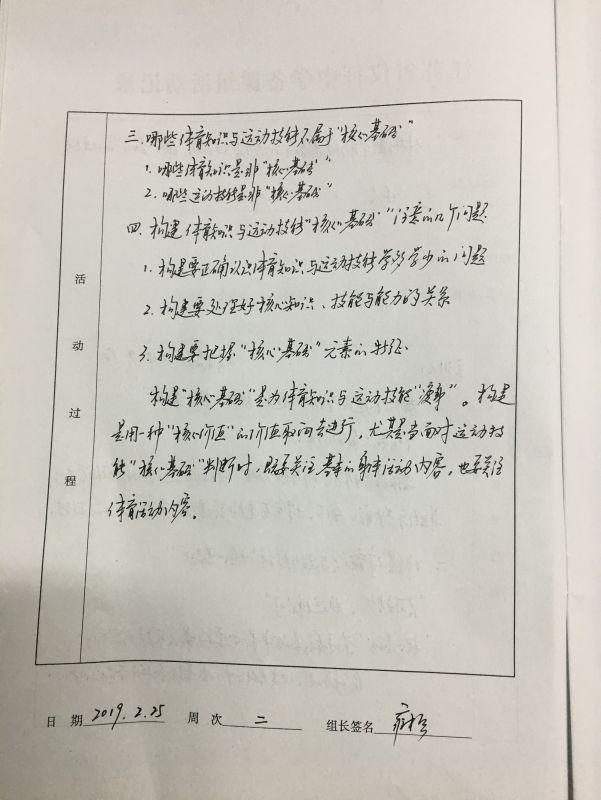 三.哪些体育知识与运动技能不属于“核心基础”
1.哪些体育知识是非“核心基础”
2.哪些运动技能是非“核心基础”
四.构建体育知识与运动技能“核心基础”注意的几个问题
1.构建要正确认识体育知识与运动技能学多学少的问题
2.构建要处理好核心知识、技能与能力的关系
3.构建要把握“核心基础”元素的特征.
构建“核心基础”是为体育知识与运动技能“瘦身”。构建
是用一种“核心价值”的价值取向去进行,尤其是当面对运动技
能“核心基础”判断时,既要关注基本的身体活动内容,也要关注
体育活动内容。
活动过程
日 期 2019.2.25 周 次 二 组长签名